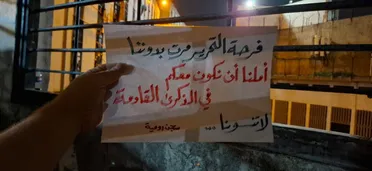 فرحة التحرير مرت بدوننا
أملنا أن نكون معكم
في الذكرى القادمة
لا تنسونا ...
سجن رومية